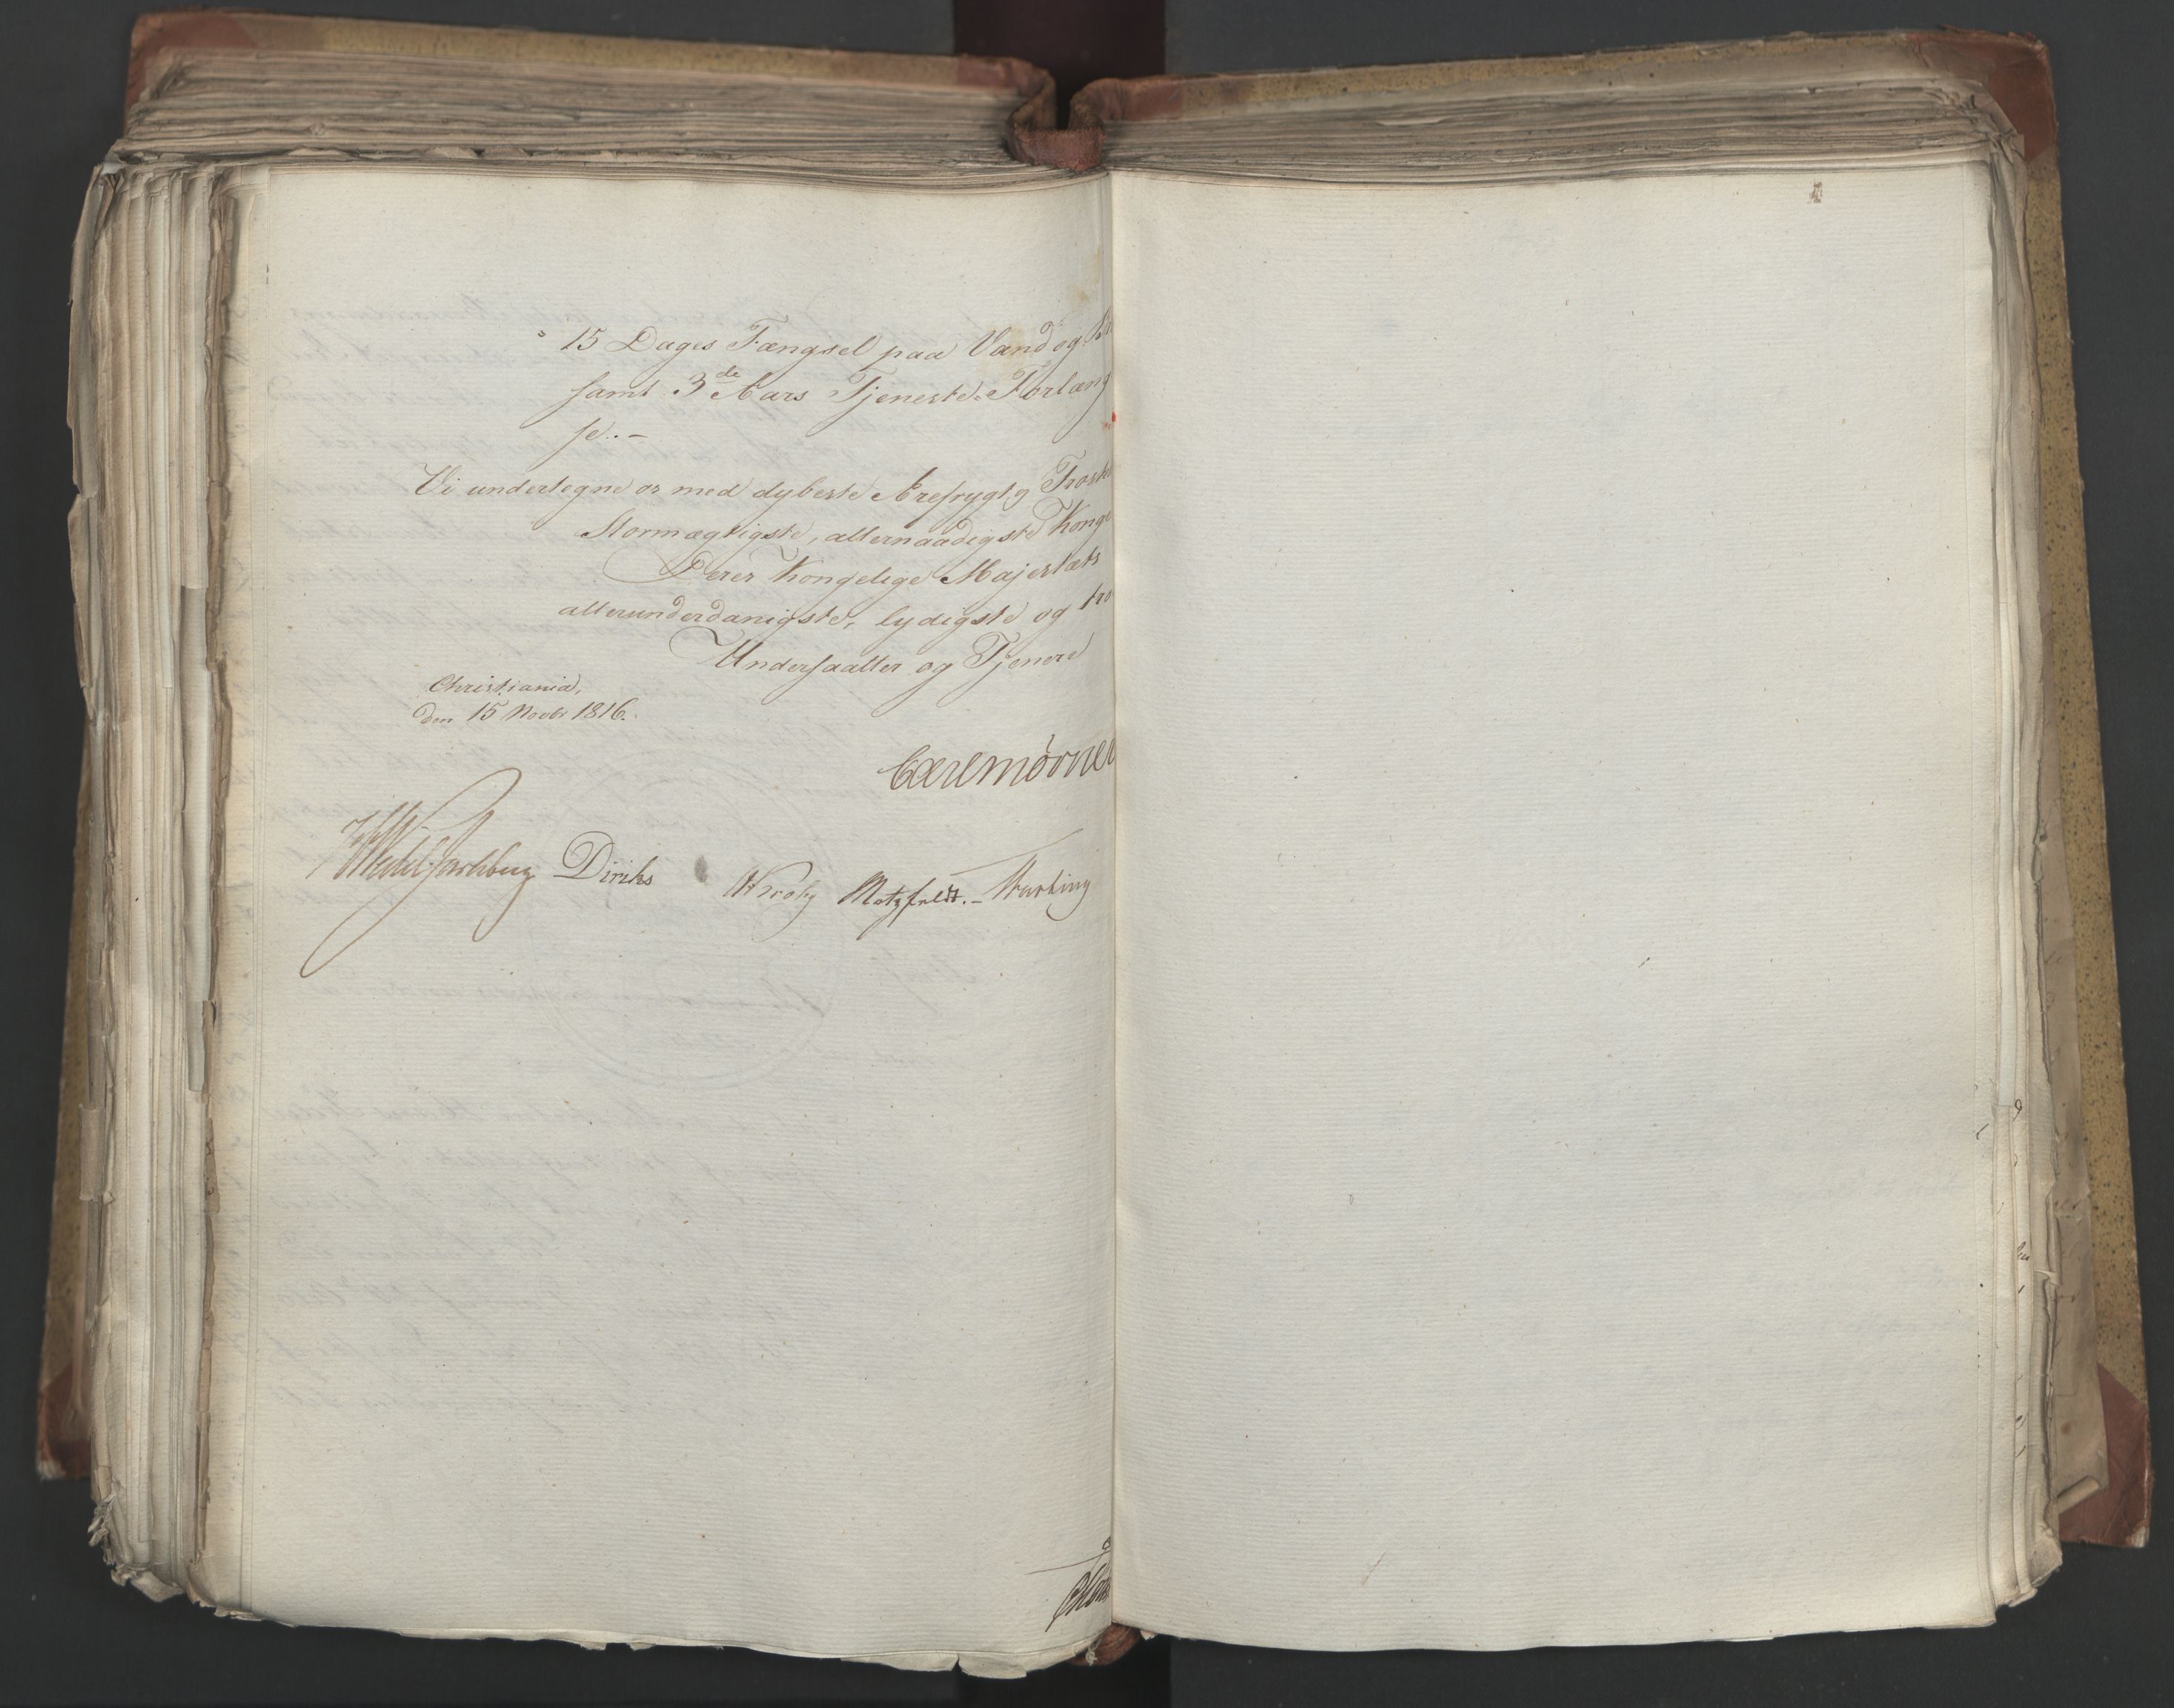 15 Dages Fængsel paa Vand og
samt 3de Aars Tjeneste-Forlæng
se.-
Vi undertegne os med dybeste Ærefrygt og Trosk
Stormægtigste, allernaadigste Konge
Deres Kongelige Majestæts
allerunderdanigste, lydigste og tro
Undersaatter og Tjenere
Christiania,
den 15 Novbr 1816.
Carl Mörner
Wedel Jarlsberg Diriks Krohg Motzfeldt.- Martin